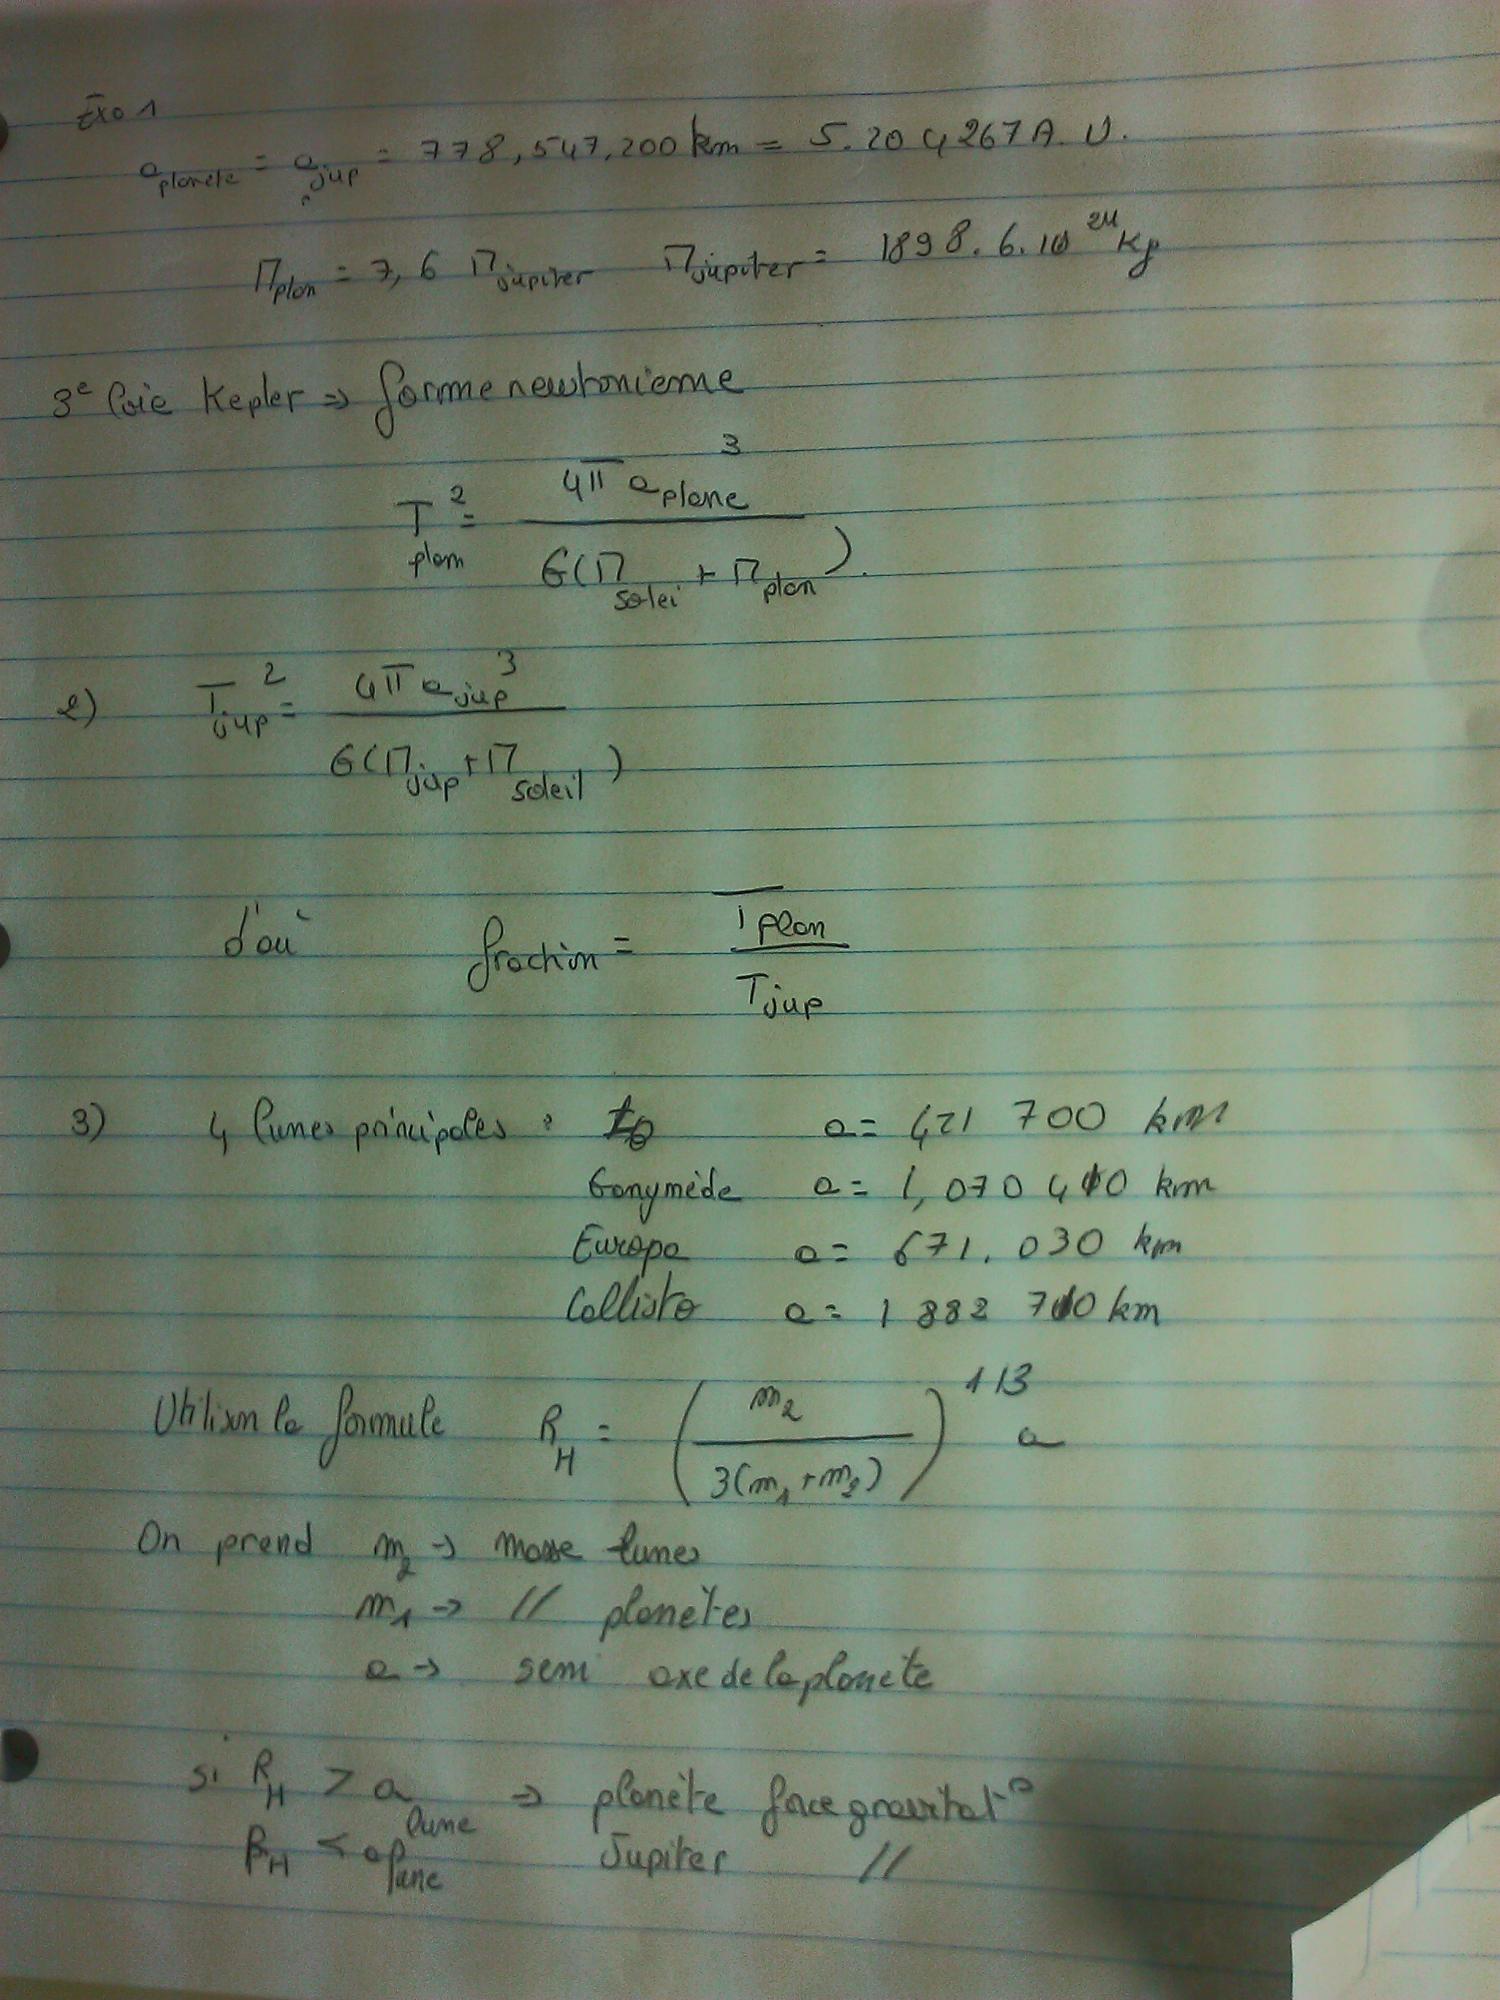 Exo 1
a planète = a jup = 778,547,200 km = 5.204267 A.U.
M plan = 7,6 M jupiter M jupiter = 1898.6.10^24 Kg
3e loie Kepler => forme newtonienne
T^2 plan = 4π a plane^3 / G(M solei + M plan).
2) T jup^2 = 4π a jup^3 / G(M jup + M soleil)
d'où fraction = T plan / T jup
3) 4 lunes principales : Io a = 421 700 km
Ganymède a = 1,070 410 km
Europa a = 671.030 km
Callisto a = 1 882 710 km
Utilison la formule R_H = (m_2 / 3(m_1 + m_2))^1/3 a
On prend m_2 -> masse lunes
m_1 -> // planètes
a -> semi axe de la planète
si R_H > a lune => planète force gravitat°
R_H < a lune Jupiter //